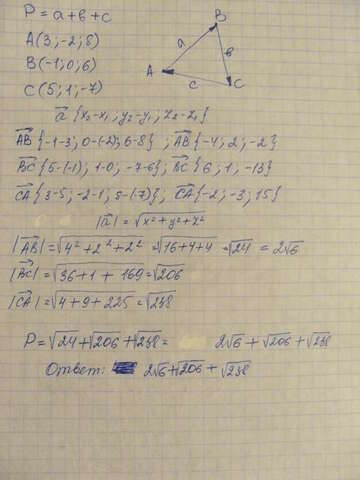 P = a+b+c
A(3;-2;8)
B(-1;0;6)
C(5;1;-7)
A a B b C c
a⃗ {x₂-x₁; y₂-y₁; z₂-z₁}
AB⃗ {-1-3; 0-(-2); 6-8}; AB⃗ {-4; 2; -2}
BC⃗ {5-(-1); 1-0; -7-6}; BC⃗ {6; 1; -13}
CA⃗ {3-5; -2-1; 8-(-7)}; CA⃗ {-2; -3; 15}
|a⃗| = √(x²+y²+z²)
|AB⃗| = √(4²+2²+2²) = √(16+4+4) = √24 = 2√6
|BC⃗| = √(36+1+169) = √206
|CA⃗| = √(4+9+225) = √238
P = √24+√206+√238 = 2√6+√206+√238
Ответ: 2√6+√206+√238